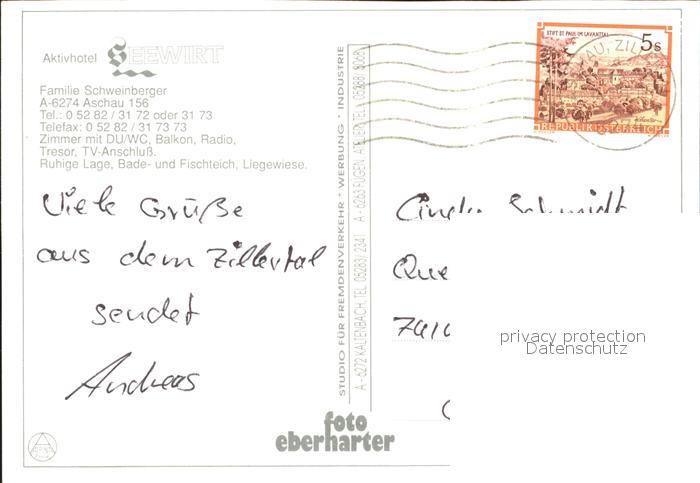 Aktivhotel SEEWIRT
Familie Schweinberger
A-6274 Aschau 156
Tel.: 0 52 82 / 31 72 oder 31 73
Telefax: 0 52 82 / 31 73 73
Zimmer mit DU/WC, Balkon, Radio,
Tresor, TV-Anschluß.
Ruhige Lage, Bade- und Fischteich, Liegewiese.
Viele Grüße
aus dem Zillertal
sendet
Andreas
STUDIO FÜR FREMDENVERKEHR * WERBUNG * INDUSTRIE
A - 6272 KALTENBACH, TEL. 05283/2341 A - 6263 FÜGEN, ATELIER, TEL. 05288/3068
foto
eberharter
STIFT ST. PAUL IM LAVANTTAL
5 S
REPUBLIK ÖSTERREICH
Schmidt
Que
privacy protection
Datenschutz